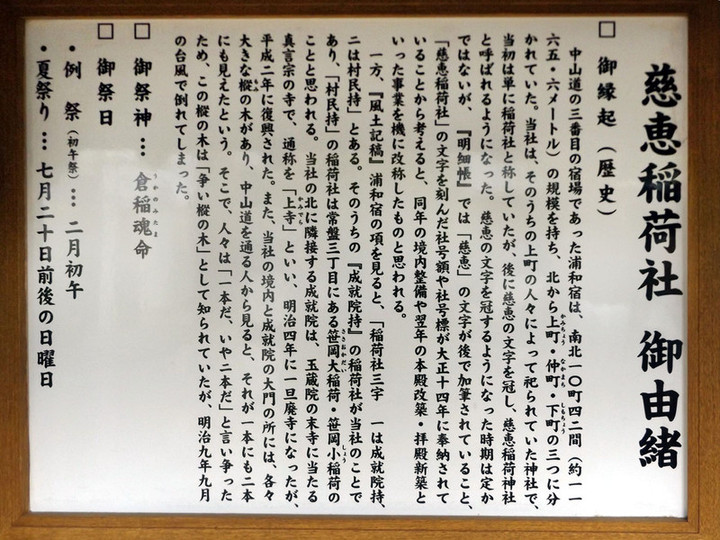 慈恵稲荷社 御由緒
□ 御縁起(歴史)
中山道の三番目の宿場であった浦和宿は、南北一〇町四二間(約一一
六五・六メートル)の規模を持ち、北から上町・仲町・下町の三つに分
かれていた。当社は、そのうちの上町の人々によって祀られていた神社で、
当初は単に稲荷社と称していたが、後に慈恵の文字を冠し、慈恵稲荷神社
と呼ばれるようになった。慈恵の文字を冠するようになった時期は定か
ではないが、『明細帳』では「慈恵」の文字が後で加筆されていること、
「慈恵稲荷社」の文字を刻んだ社号額や社号標が大正十四年に奉納されて
いることから考えると、同年の境内整備や翌年の本殿改築・拝殿新築と
いった事業を機に改称したものと思われる。
一方、『風土記稿』浦和宿の項を見ると、「稲荷社三宇 一は成就院持、
二は村民持」とある。そのうちの『成就院持』の稲荷社が当社のことで
あり、「村民持」の稲荷社は常盤三丁目にある笹岡大稲荷・笹岡小稲荷の
ことと思われる。当社の北に隣接する成就院は、玉蔵院の末寺に当たる
真言宗の寺で、通称を「上寺」といい、明治四年に一旦廃寺になったが、
平成二年に復興された。また、当社の境内と成就院の大門の所には、各々
大きな樅の木があり、中山道を通る人から見ると、それが一本にも二本
にも見えたという。そこで、人々は「一本だ、いや二本だ」と言い争った
ため、この樅の木は「争い樅の木」として知られていたが、明治九年九月
の台風で倒れてしまった。
□ 御祭神… 倉稲魂命
□ 御祭日
・例 祭(初午祭)… 二月初午
・夏祭り… 七月二十日前後の日曜日